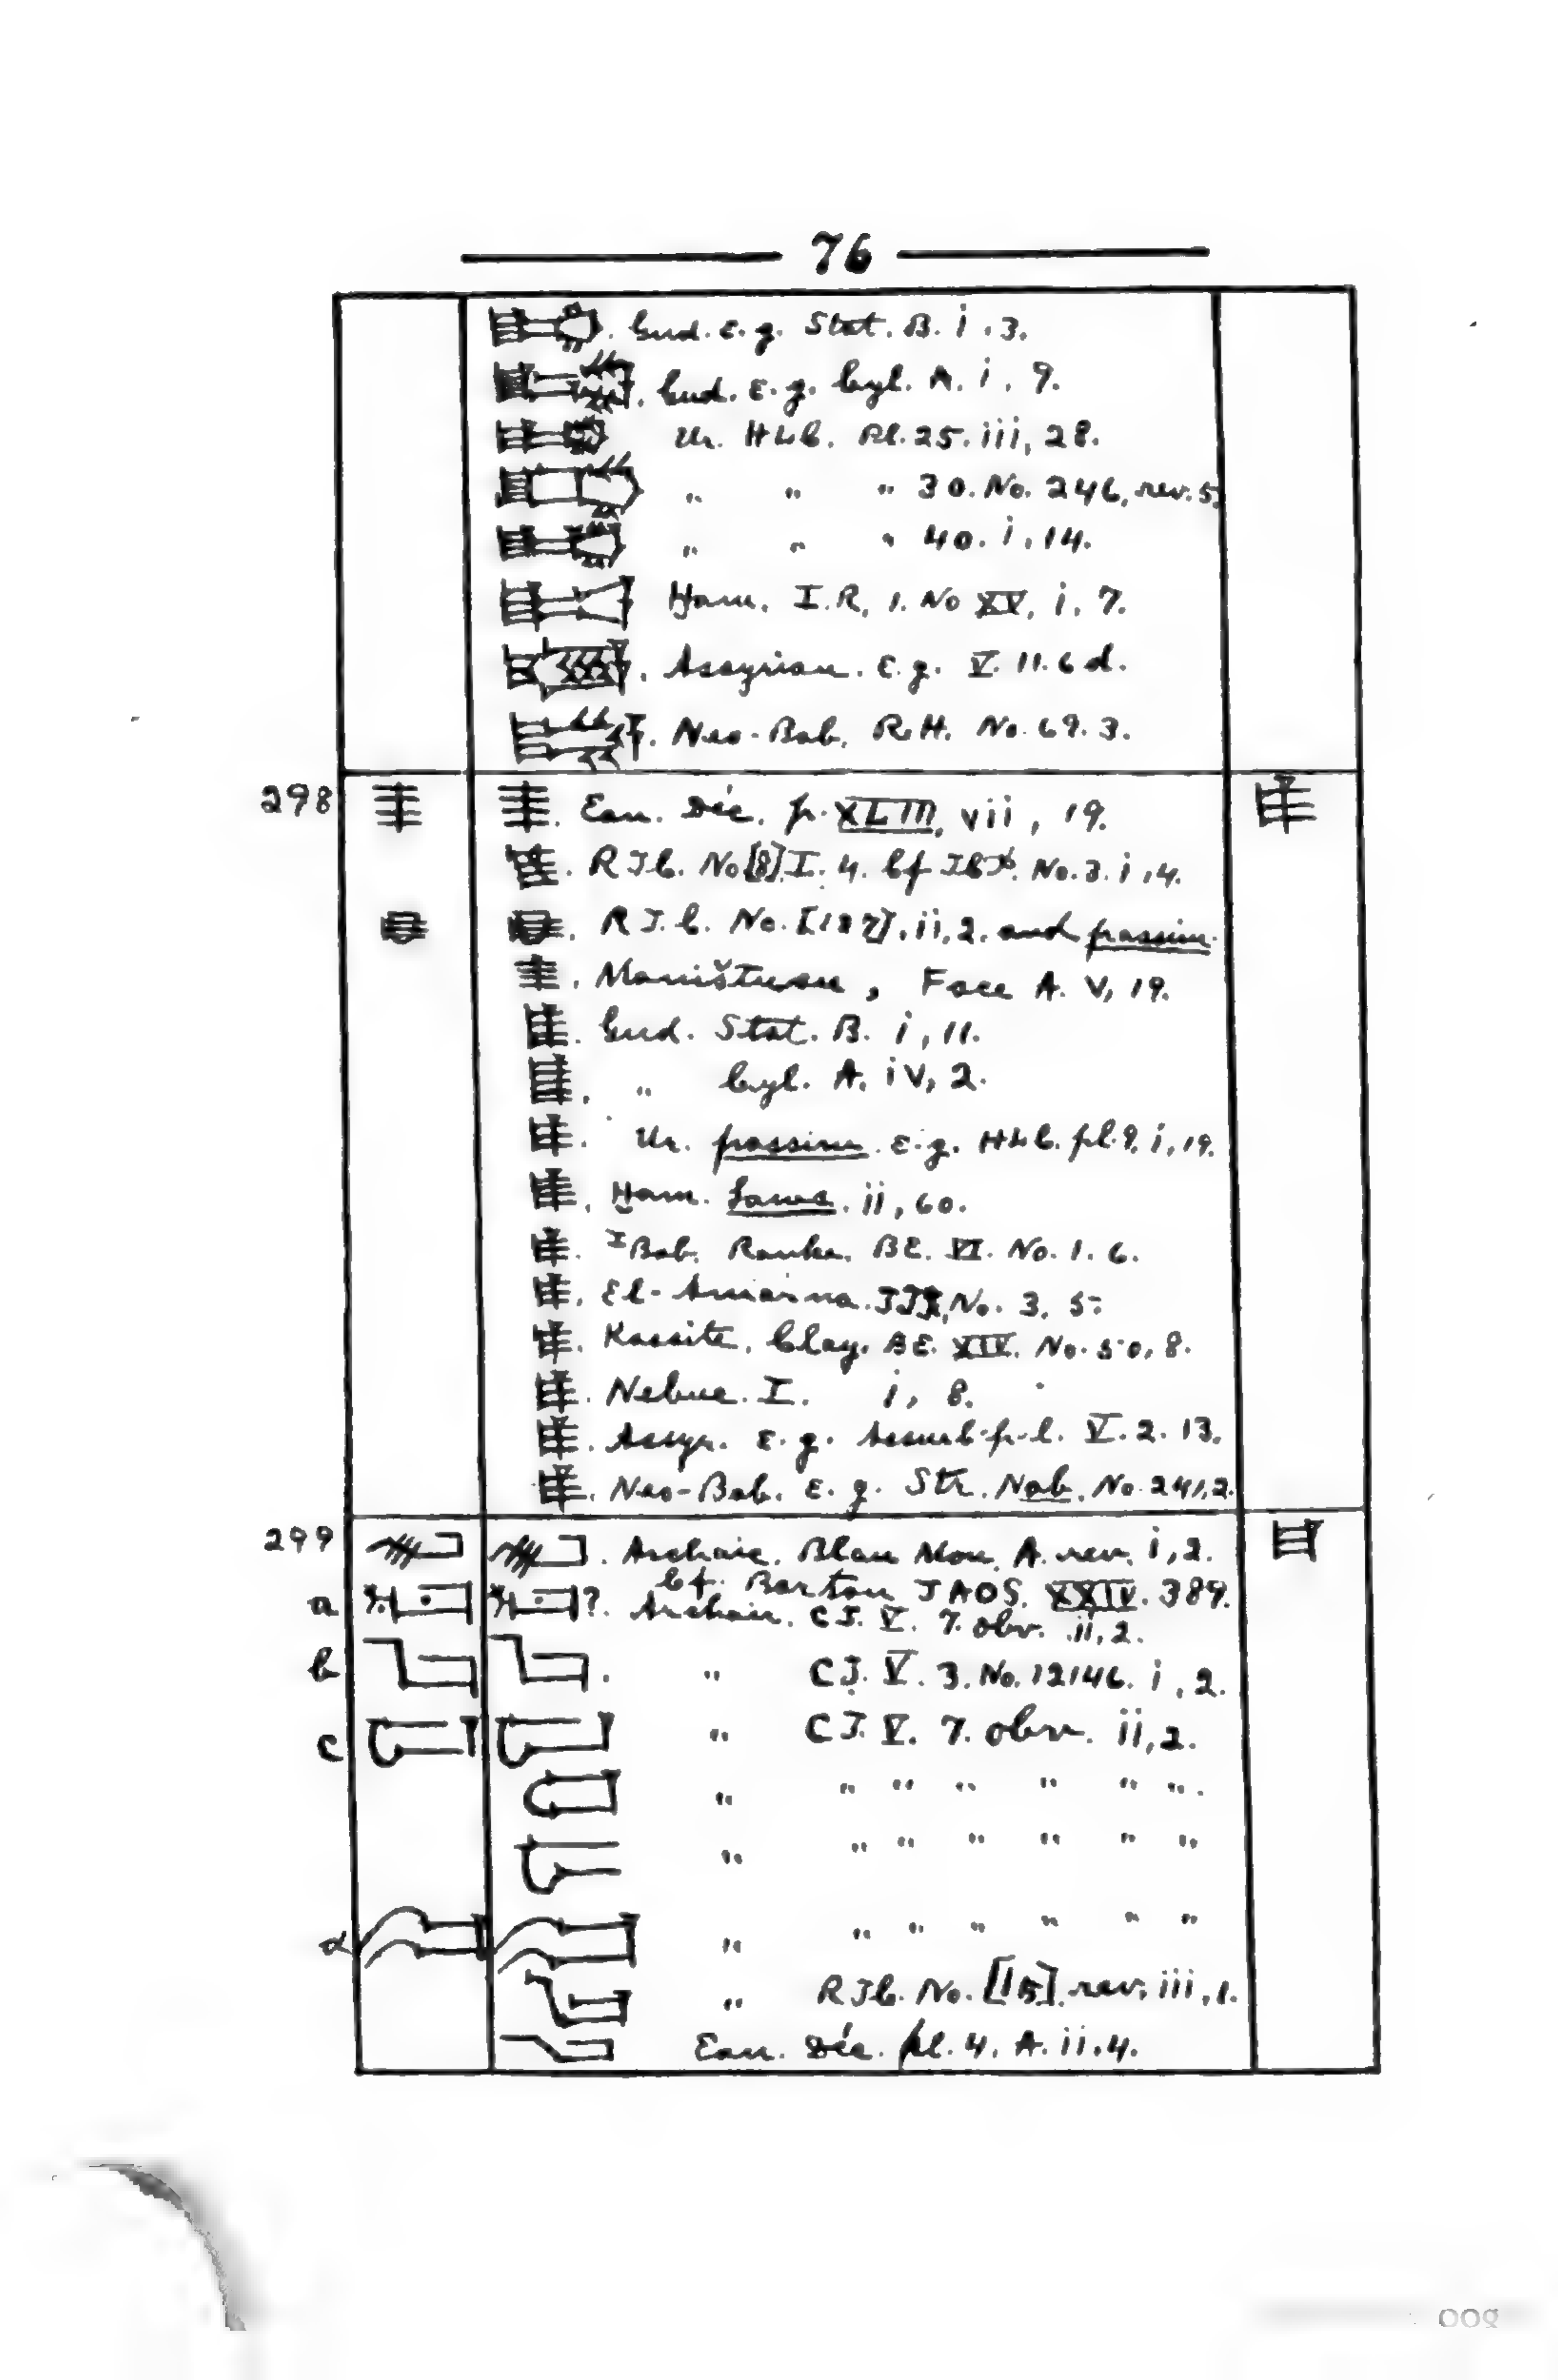 76
Gud. E.g. Stat. B. i. 3.
Gud. E.g. Cyl. A. i, 9.
Ur. HLC. Pl. 25. iii, 28.
" " " 30. No. 246, rev. 5.
" " " 40. i, 14.
Ḫam. I.R, 1. No XV, i, 7.
Assyrian. E.g. V. 11. 6 d.
Neo-Bab. R.H. No. 69. 3.
298
Ean. Déc. p. XLIII, vii, 19.
RTC. No [8] I. 4. Cf No. 3. i, 4.
RTC. No. [187], ii, 2. and passim.
Maništusu, Face A. V, 19.
Gud. Stat. B. i, 11.
" Cyl. A. iv, 2.
Ur. passim. E.g. HLC. pl. 9. i, 19.
Ḫam. Laws. ii, 60.
I Bab. Ranke. BE. VI. No. 1. 6.
El-Amarna. No. 3, 5.
Kassite. Clay. BE. XIV. No. 50, 8.
Nebuc. I. i, 8.
Assyr. E.g. Assurb-p-l. V. 2. 13.
Neo-Bab. E.g. Str. Nab. No. 241, 2.
299
Archaic. Blau Mon. A. rev. i, 2.
Cf. Barton JAOS. XXIV. 389.
a ?. Archaic. CT. V. 7. obv. ii, 2.
b " CT. V. 3. No. 12146. i, 2.
c " CT. V. 7. obv. ii, 2.
" " " " " " "
" " " " " " "
d " " " " " " "
" RTC. No. [15] rev. iii, 1.
Ean. Déc. pl. 4. A. ii. 4.